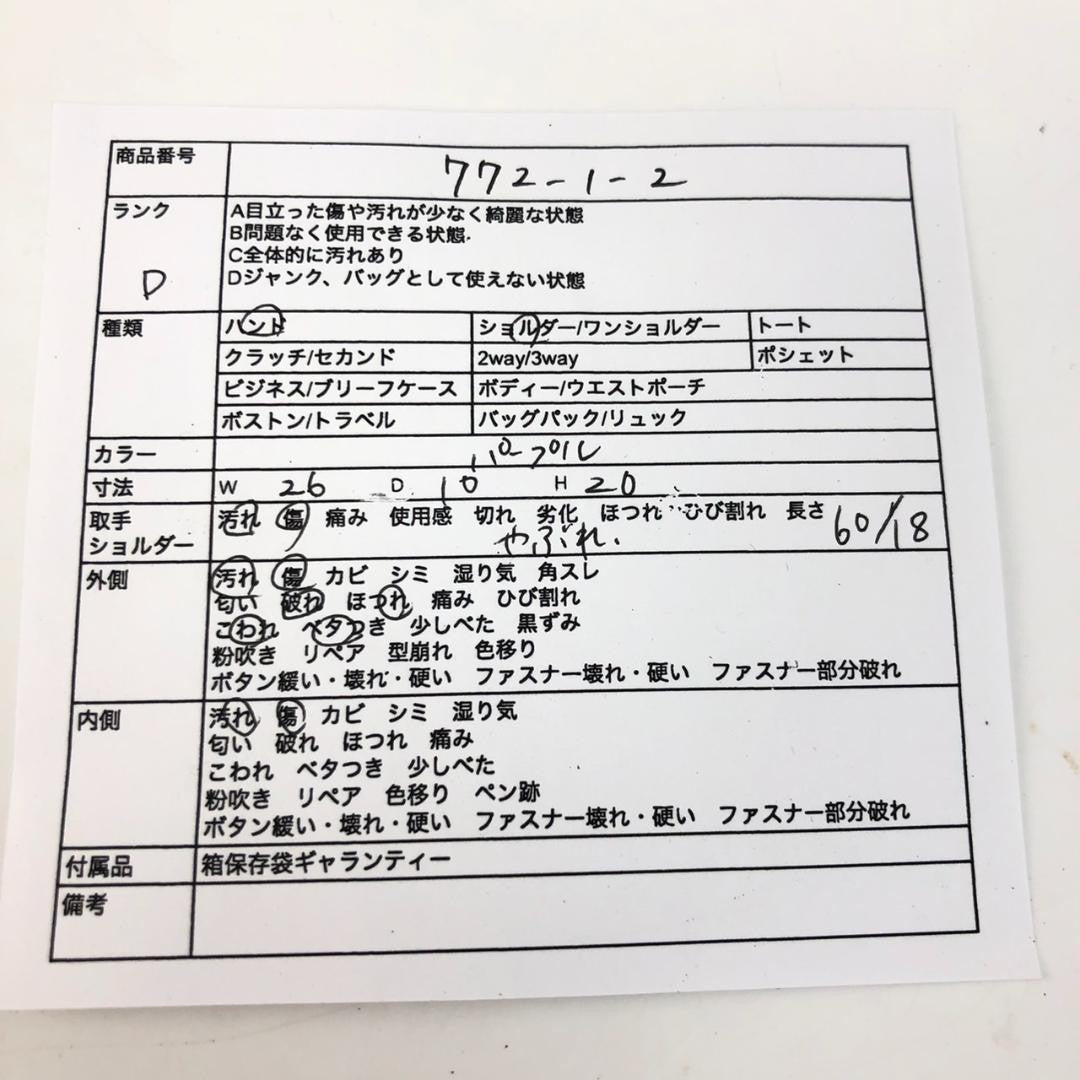 商品番号 772-1-2
ランク A目立った傷や汚れが少なく綺麗な状態
B問題なく使用できる状態.
C全体的に汚れあり
D Dジャンク、バッグとして使えない状態
種類 ハンド ショルダー/ワンショルダー トート
クラッチ/セカンド 2way/3way ポシェット
ビジネス/ブリーフケース ボディー/ウエストポーチ
ボストン/トラベル バッグパック/リュック
カラー パープル
寸法 W 26 D 10 H 20
取手 汚れ 傷 痛み 使用感 切れ 劣化 ほつれ ひび割れ 長さ 60/18
ショルダー やぶれ.
外側 汚れ 傷 カビ シミ 湿り気 角スレ
匂い 破れ ほつれ 痛み ひび割れ
こわれ ベタつき 少しべた 黒ずみ
粉吹き リペア 型崩れ 色移り
ボタン緩い・壊れ・硬い ファスナー壊れ・硬い ファスナー部分破れ
内側 汚れ 傷 カビ シミ 湿り気
匂い 破れ ほつれ 痛み
こわれ ベタつき 少しべた
粉吹き リペア 色移り ペン跡
ボタン緩い・壊れ・硬い ファスナー壊れ・硬い ファスナー部分破れ
付属品 箱保存袋ギャランティー
備考